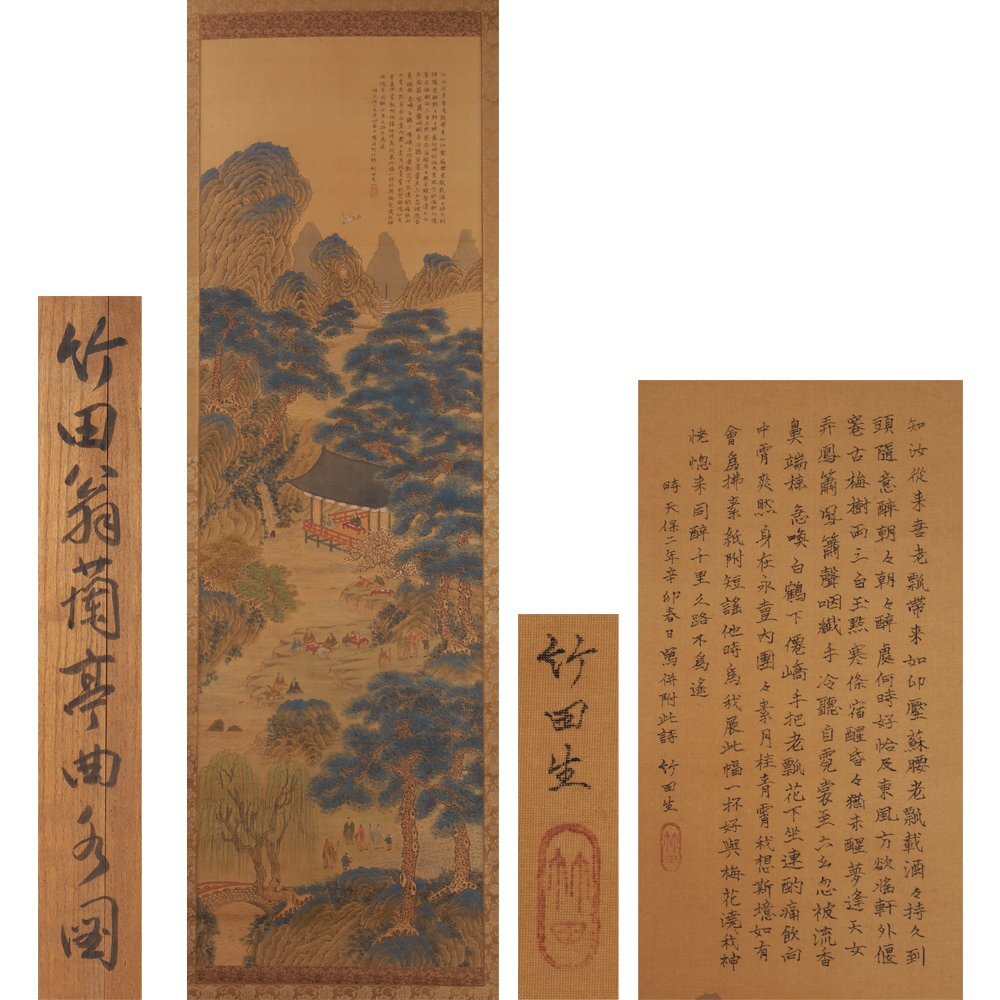 竹田翁蘭亭曲水圖
竹田生
竹田
知汝從来喜老瓢帶来如印壓蘇腰老瓢載酒々持久到
頭隨意醉朝々朝々醉處何時好恰及東風方欲搖軒外偃
蹇古梅樹両三白玉點寒條宿醒昏々猶未醒夢逢天女
弄鳳簫鳳簫聲咽纖手冷聽自霓裳至六幺忽被流香
鼻端掠急喚白鶴下僊嶠手把老瓢花下坐連酌痛飲向
中霄爽然身在永壷内團々素月桂青霄我想斯境如有
會為拂素紙附短謠他時為我展此幅一杯好與梅花澆我神
恍惚来同醉千里久路不為遙
時天保二年辛卯春日寫併附此詩 竹田生